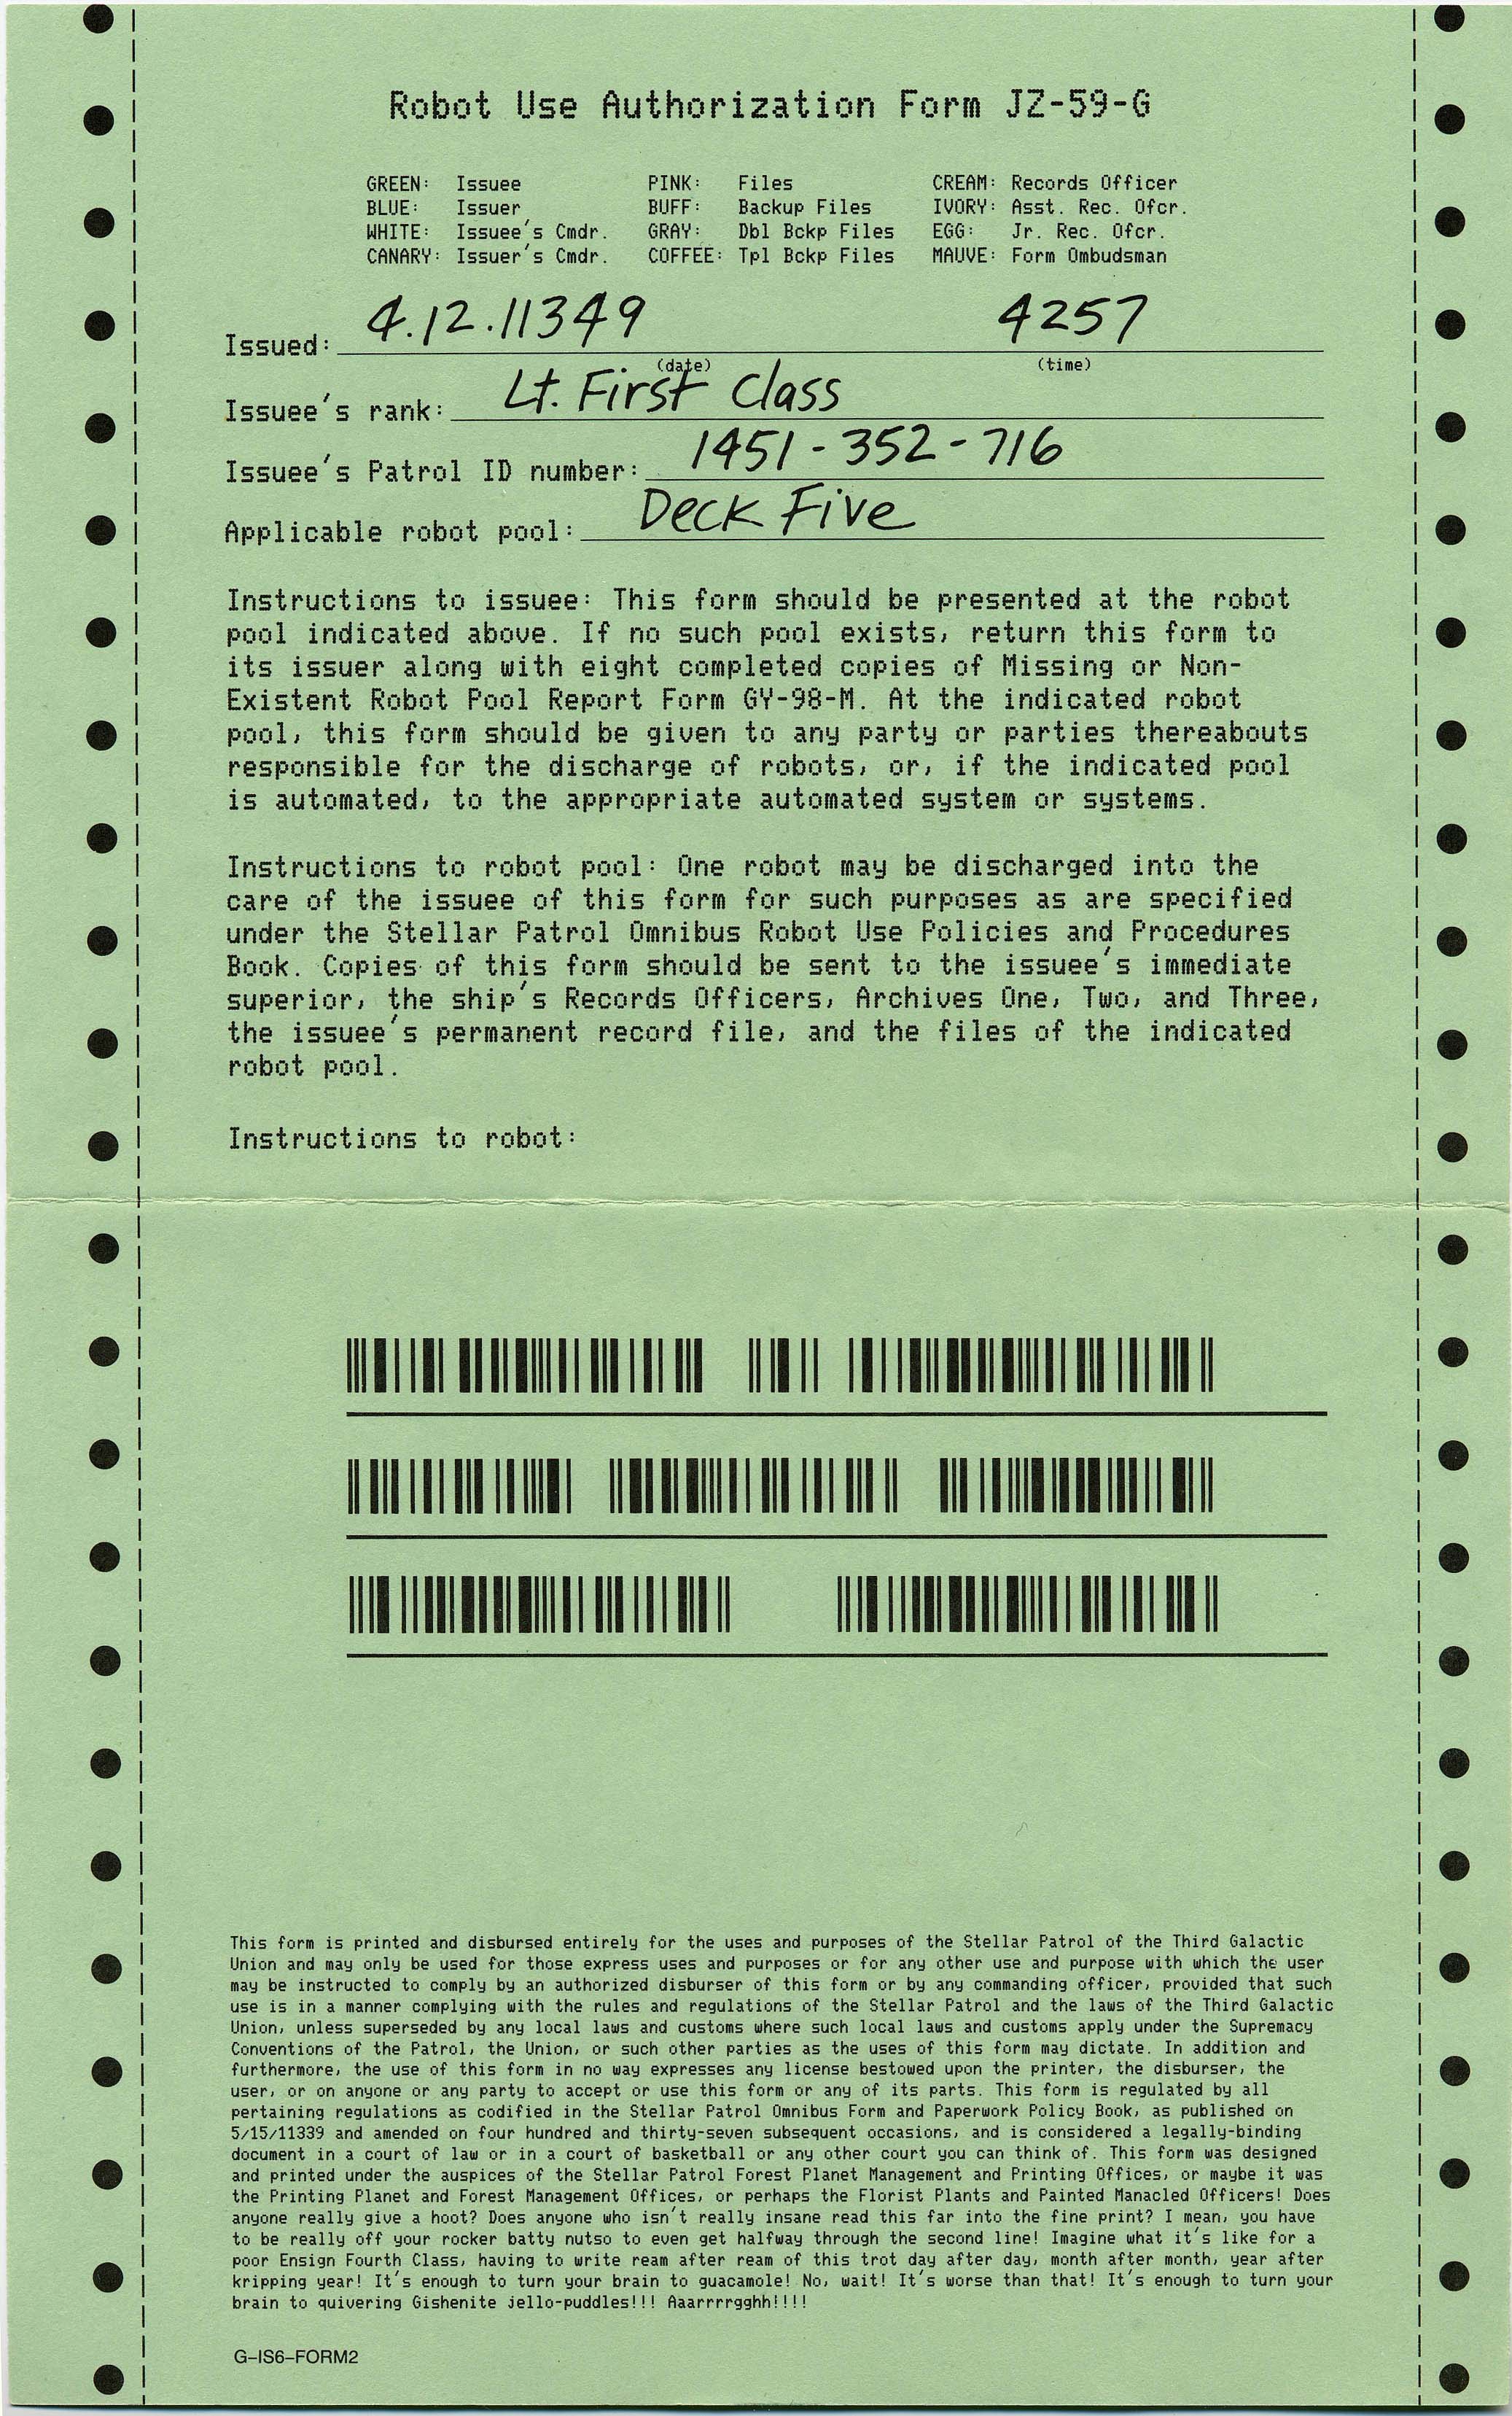 Robot Use Authorization Form JZ-59-G
GREEN: Issuee PINK: Files CREAM: Records Officer
BLUE: Issuer BUFF: Backup Files IVORY: Asst. Rec. Ofcr.
WHITE: Issuee's Cmdr. GRAY: Dbl Bckp Files EGG: Jr. Rec. Ofcr.
CANARY: Issuer's Cmdr. COFFEE: Tpl Bckp Files MAUVE: Form Ombudsman
Issued: 4.12.11349 4257
(date) (time)
Issuee's rank: Lt. First Class
Issuee's Patrol ID number: 1451-352-716
Applicable robot pool: Deck Five
Instructions to issuee: This form should be presented at the robot
pool indicated above. If no such pool exists, return this form to
its issuer along with eight completed copies of Missing or Non-
Existent Robot Pool Report Form GY-98-M. At the indicated robot
pool, this form should be given to any party or parties thereabouts
responsible for the discharge of robots, or, if the indicated pool
is automated, to the appropriate automated system or systems.
Instructions to robot pool: One robot may be discharged into the
care of the issuee of this form for such purposes as are specified
under the Stellar Patrol Omnibus Robot Use Policies and Procedures
Book. Copies of this form should be sent to the issuee's immediate
superior, the ship's Records Officers, Archives One, Two, and Three,
the issuee's permanent record file, and the files of the indicated
robot pool.
Instructions to robot:
This form is printed and disbursed entirely for the uses and purposes of the Stellar Patrol of the Third Galactic
Union and may only be used for those express uses and purposes or for any other use and purpose with which the user
may be instructed to comply by an authorized disburser of this form or by any commanding officer, provided that such
use is in a manner complying with the rules and regulations of the Stellar Patrol and the laws of the Third Galactic
Union, unless superseded by any local laws and customs where such local laws and customs apply under the Supremacy
Conventions of the Patrol, the Union, or such other parties as the uses of this form may dictate. In addition and
furthermore, the use of this form in no way expresses any license bestowed upon the printer, the disburser, the
user, or on anyone or any party to accept or use this form or any of its parts. This form is regulated by all
pertaining regulations as codified in the Stellar Patrol Omnibus Form and Paperwork Policy Book, as published on
5/15/11339 and amended on four hundred and thirty-seven subsequent occasions, and is considered a legally-binding
document in a court of law or in a court of basketball or any other court you can think of. This form was designed
and printed under the auspices of the Stellar Patrol Forest Planet Management and Printing Offices, or maybe it was
the Printing Planet and Forest Management Offices, or perhaps the Florist Plants and Painted Manacled Officers! Does
anyone really give a hoot? Does anyone who isn't really insane read this far into the fine print? I mean, you have
to be really off your rocker batty nutso to even get halfway through the second line! Imagine what it's like for a
poor Ensign Fourth Class, having to write ream after ream of this trot day after day, month after month, year after
kripping year! It's enough to turn your brain to guacamole! No, wait! It's worse than that! It's enough to turn your
brain to quivering Gishenite jello-puddles!!! Aaarrrrgghh!!!!
G-IS6-FORM2